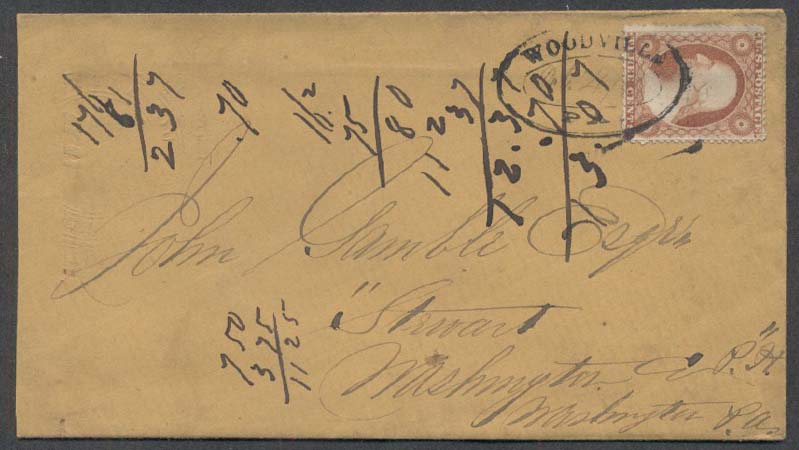 WOODVILLE
Pa
U.S. POSTAGE
THREE CENTS
176
61
237
.70
162
75
80
11 2
37
12.37
.70
13.07
John Gamble Esqr
"Stewart
Washington P."H
Washington Pa.
750
375
1125